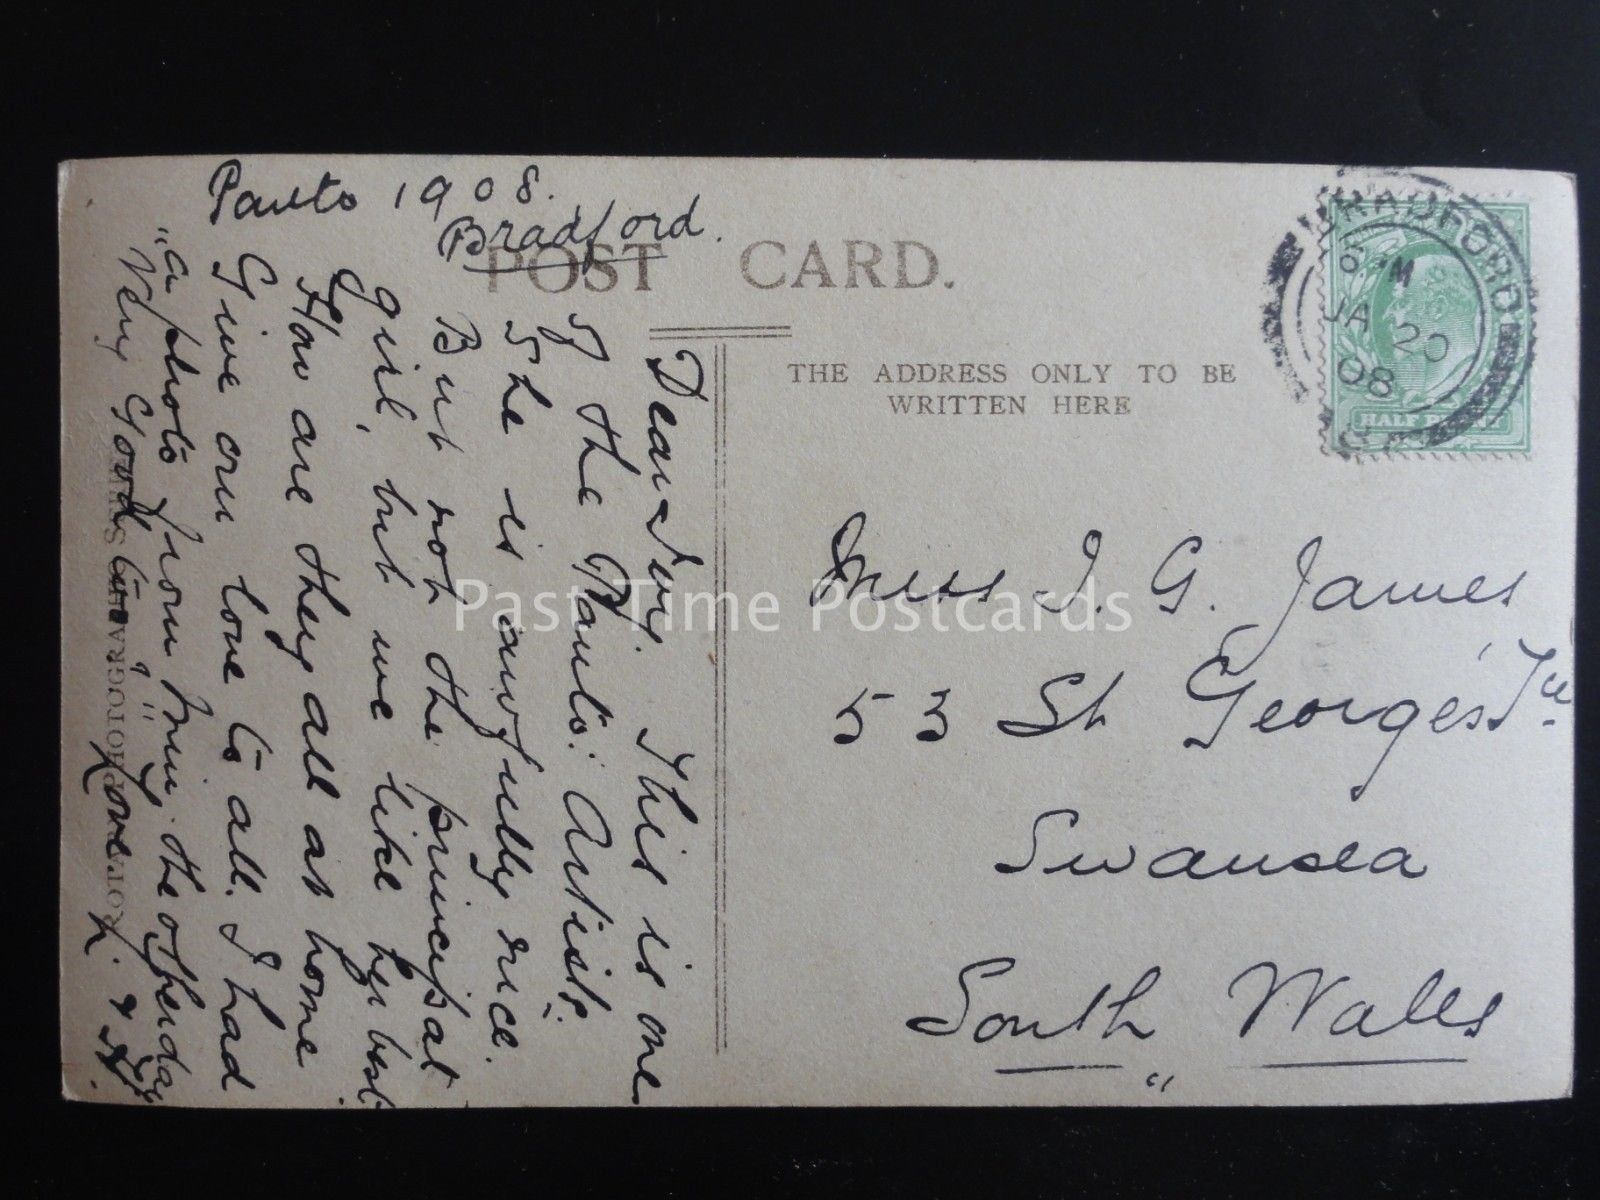 Panto 1908.
Bradford.
POST CARD.
THE ADDRESS ONLY TO BE
WRITTEN HERE
BRADFORD
JA 20
08
HALF PENNY
Miss I. G. James
53 St George's Tce
Swansea
South Wales
Dear Ivy. This is one
of the Panto: Artists.
She is awfully nice.
But not the principal
girl, but we like her best.
How are they all at home
Give our love to all. I had
"a photo from the other day
Very Good too,"
Love. L. & A.
ROTARY PHOTOGRAPHIC SERIES
Past Time Postcards